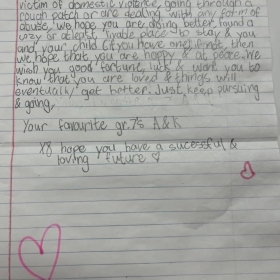 victim of domestic violence, going through a
rough patch or are dealing with any form of
abuse, we hope you are doing better, found a
way or atlepst livable place to stay & you
and your child (if you have one). If not, then
we hope that you are happy & at peace. We
wish you good fortune, luck & want you to
know that you are loved & things will
eventually get better. Just keep pursuing
& going.
Your favourite gr.7's A&K
hope you have a sucessful &
loving future